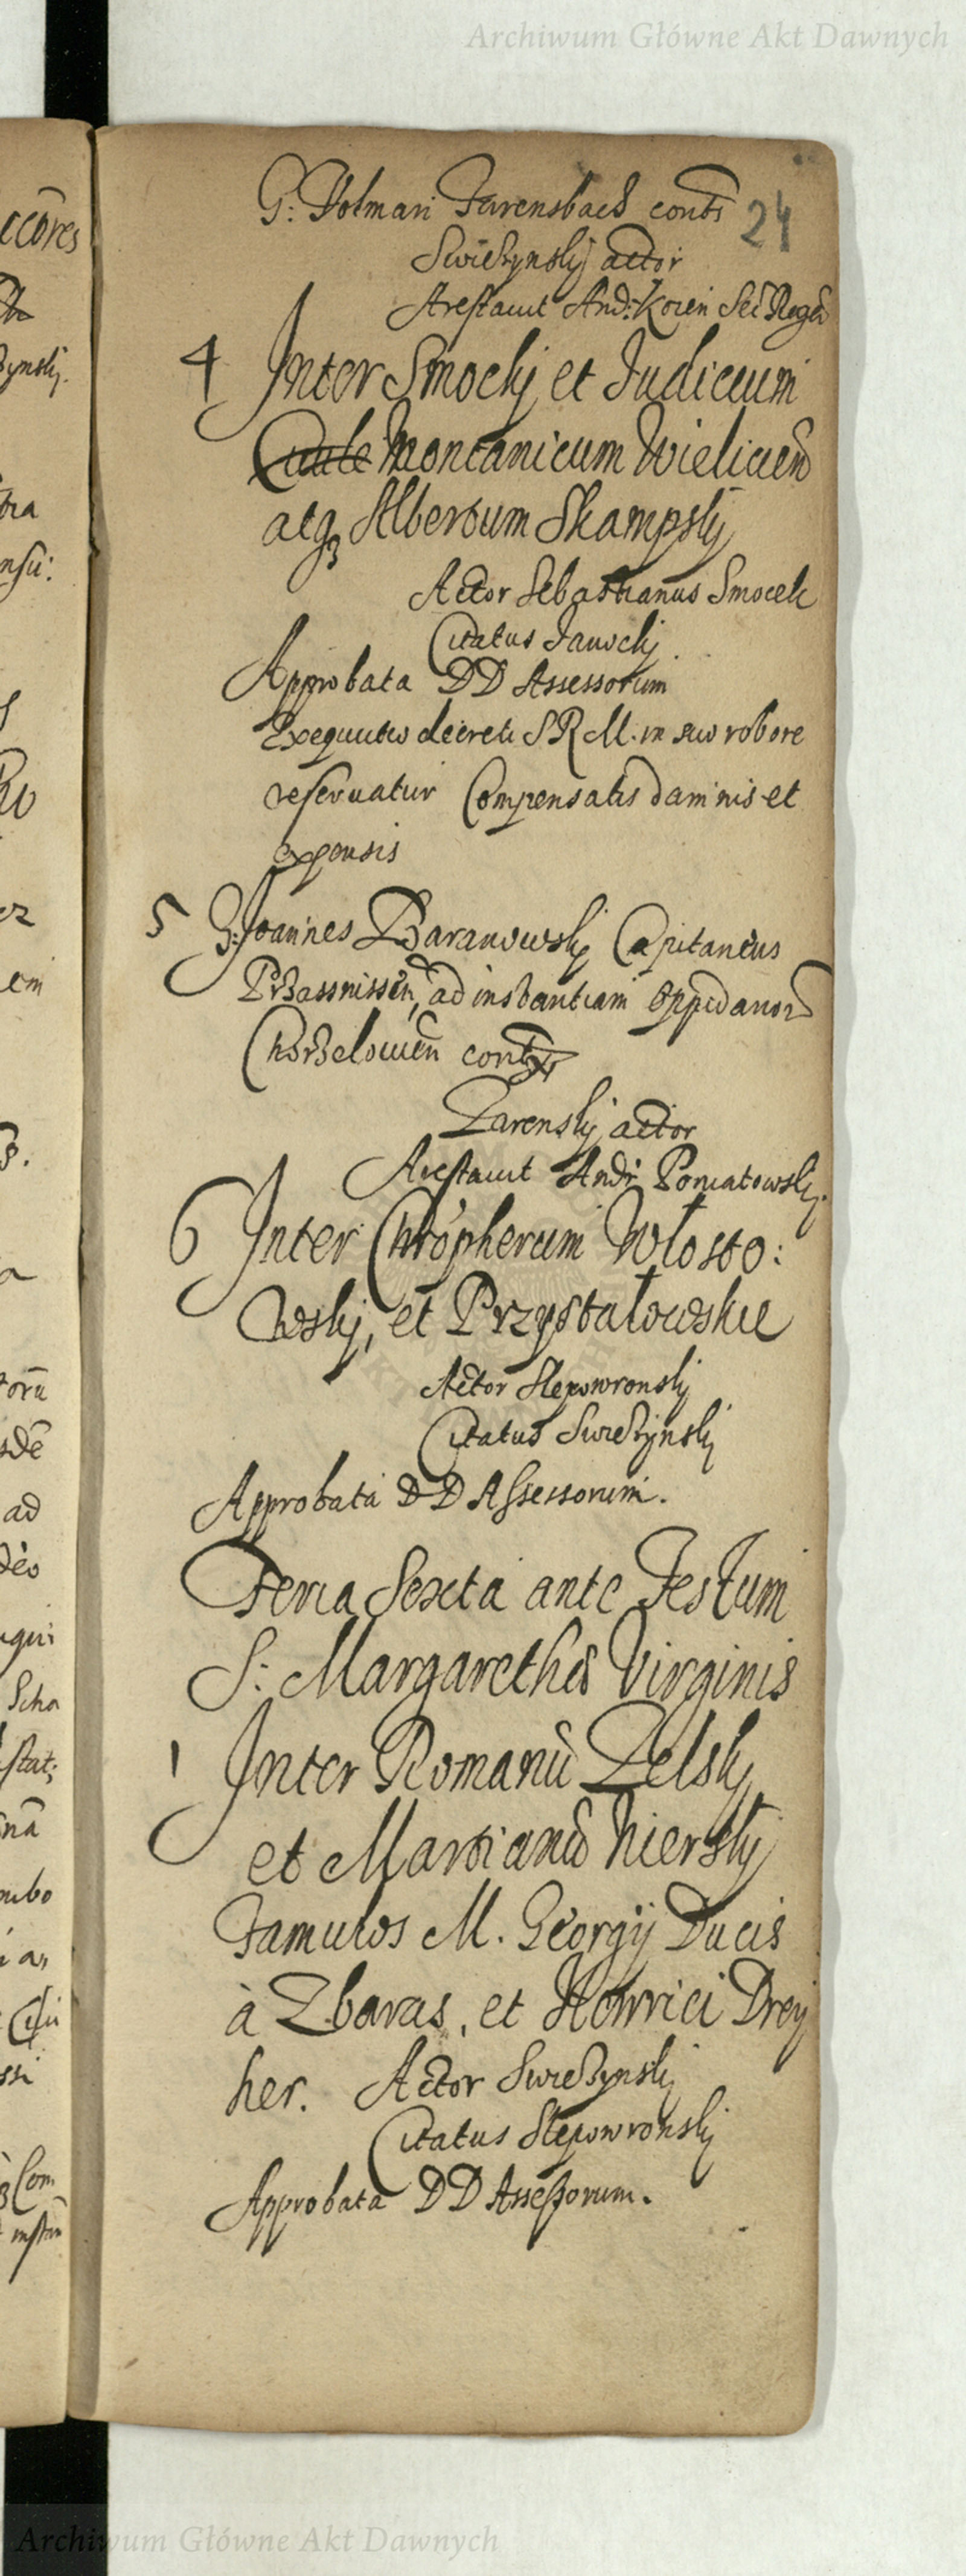 Archiwum Główne Akt Dawnych
G: Volmari Farensbach contr
24
Swieżynskj actor
Arestavit And: Kocien Sec Regen
4 Inter Smockj et Judicium
Civile Montanicum Wielicien
atq3 Albertum Skampskj
Actor Sebastianus Smocek
Citatus Janockj
Approbata DD Assessorum
Exequutio decreti S R M. in suo robore
reservatur Compensatis damnis et
expensis
5 G: Joannes Baranowskj Capitaneus
Przassnissen, ad instantiam Oppidanor
Chorzelovien contr
Zarenskj actor
Arestavit Andr Poniatowskj.
6 Inter Chrõpherum Włosto:
wskj, et Przystałowskie
Actor Slepowronskj
Citatus Swieżynskj
Approbata DD Assessorum.
Feria Sexta ante Festum
S: Margarethes Virginis
1 Inter Romanũ Zelskj
et Martianũ Nierskj
Famulos M. Georgij Ducis
à Zbaras, et Henrici Drey
her. Actor Swieżynskj
Citatus Slepowronskj
Approbata DD Assessorum.
Archiwum Główne Akt Dawnych